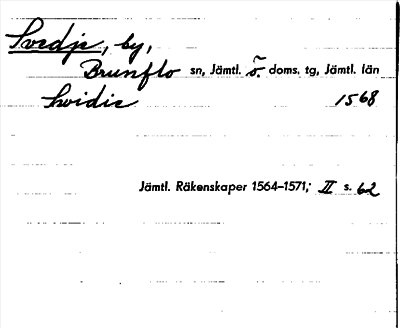 Svedje, by,
Brunflo sn, Jämtl. ö. doms. tg, Jämtl. län
hvidie 1568
Jämtl. Räkenskaper 1564–1571; II s. 62